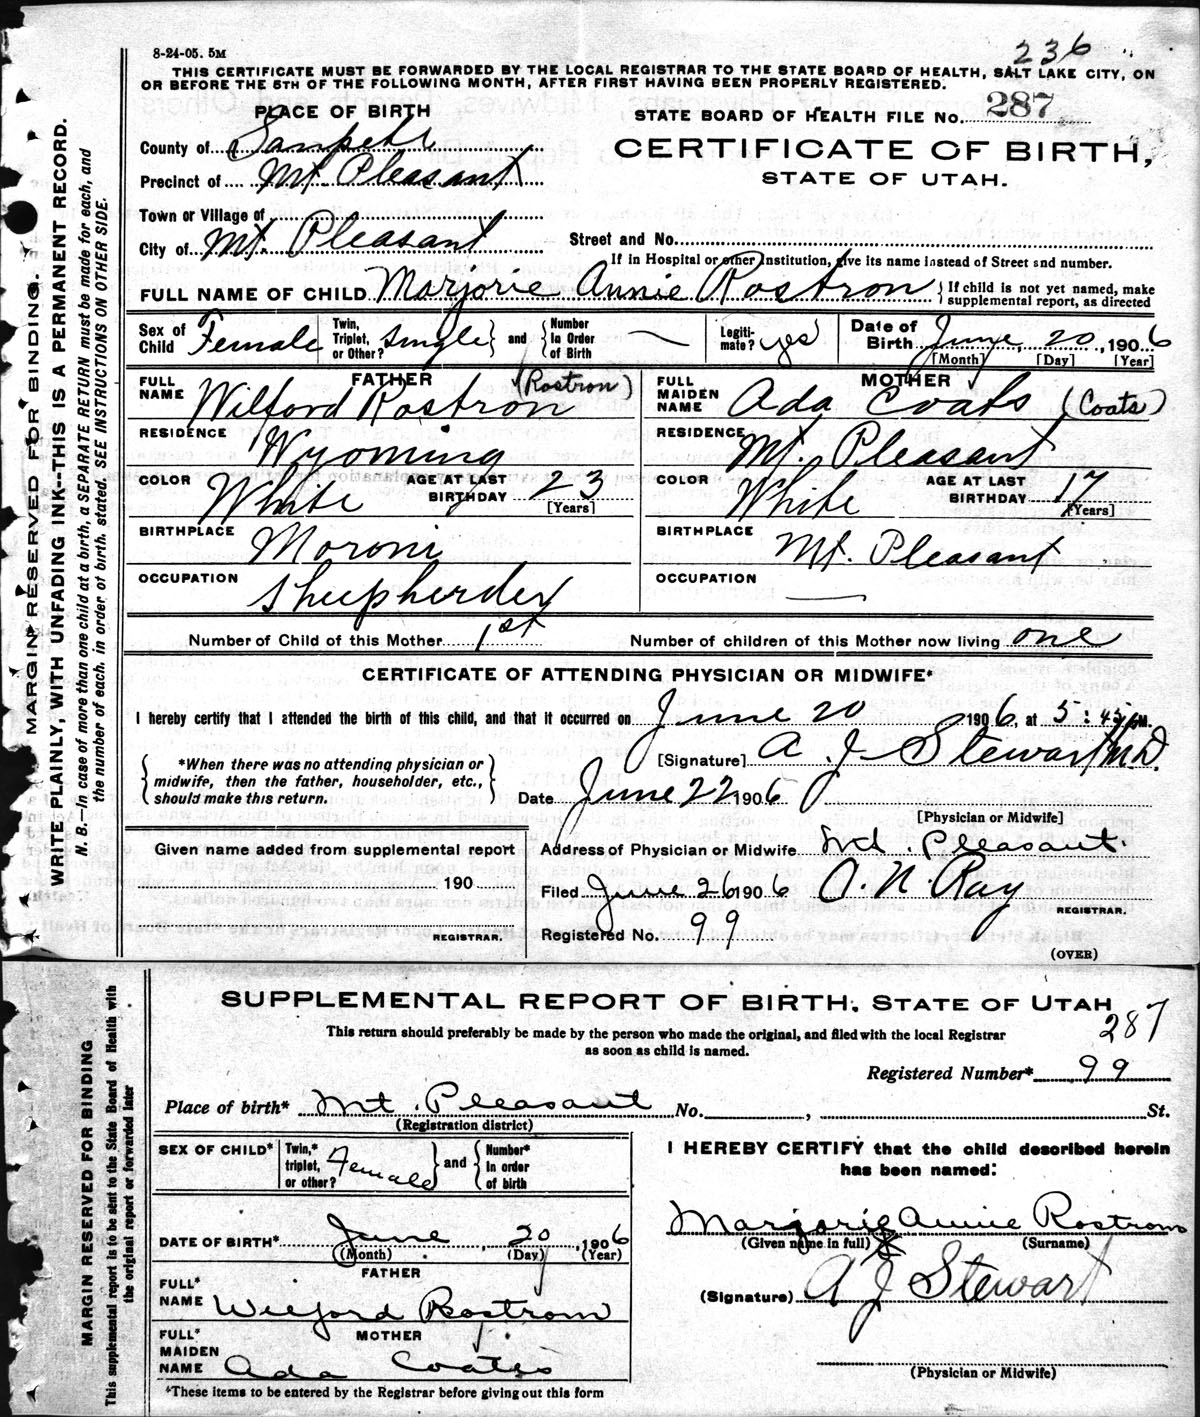 236
8-24-05. 5M
THIS CERTIFICATE MUST BE FORWARDED BY THE LOCAL REGISTRAR TO THE STATE BOARD OF HEALTH, SALT LAKE CITY, ON
OR BEFORE THE 5TH OF THE FOLLOWING MONTH, AFTER FIRST HAVING BEEN PROPERLY REGISTERED.
PLACE OF BIRTH
STATE BOARD OF HEALTH FILE NO. 287
County of Sanpete
CERTIFICATE OF BIRTH,
STATE OF UTAH.
Precinct of Mt Pleasant
Town or Village of
City of Mt. Pleasant
Street and No.
If in Hospital or other Institution, give its name instead of Street and number.
FULL NAME OF CHILD Marjorie Annie Rostron { If child is not yet named, make
supplemental report, as directed
Sex of Child Female
Twin, Triplet, or Other? Single } and { Number In Order of Birth —
Legiti-mate? yes
Date of Birth June 20, 1906
[Month] [Day] [Year]
FATHER
FULL NAME Wilford Rostron (Rostron)
MOTHER
FULL MAIDEN NAME Ada Coats (Coats)
RESIDENCE Wyoming
RESIDENCE Mt. Pleasant
COLOR White AGE AT LAST BIRTHDAY 23 [Years]
COLOR White AGE AT LAST BIRTHDAY 17 [Years]
BIRTHPLACE Moroni
BIRTHPLACE Mt. Pleasant
OCCUPATION Sheepherder
OCCUPATION —
Number of Child of this Mother 1st
Number of children of this Mother now living one
CERTIFICATE OF ATTENDING PHYSICIAN OR MIDWIFE*
I hereby certify that I attended the birth of this child, and that it occurred on June 20 1906, at 5:45 M.
[Signature] A J Stewart M.D.
{ *When there was no attending physician or
midwife, then the father, householder, etc.,
should make this return. }
Date June 22 1906
[Physician or Midwife]
Given name added from supplemental report
190
REGISTRAR.
Address of Physician or Midwife Mt. Pleasant.
Filed June 26 1906 A. N. Ray
REGISTRAR.
Registered No. 99
(OVER)
MARGIN RESERVED FOR BINDING.
WRITE PLAINLY, WITH UNFADING INK---THIS IS A PERMANENT RECORD.
N. B.—In case of more than one child at a birth, a SEPARATE RETURN must be made for each, and
the number of each, in order of birth, stated. SEE INSTRUCTIONS ON OTHER SIDE.
SUPPLEMENTAL REPORT OF BIRTH, STATE OF UTAH
287
This return should preferably be made by the person who made the original, and filed with the local Registrar
as soon as child is named.
Registered Number* 99
Place of birth* Mt. Pleasant No. , St.
(Registration district)
SEX OF CHILD* Twin,* triplet, or other? Female } and { Number* In order of birth
I HEREBY CERTIFY that the child described herein
has been named:
Marjorie Annie Rostron
(Given name in full) (Surname)
DATE OF BIRTH* June, 20, 1906
(Month) (Day) (Year)
FATHER
FULL* NAME Wilford Rostrom
(Signature) A J Stewart
MOTHER
FULL* MAIDEN NAME Ada Coates
(Physician or Midwife)
*These items to be entered by the Registrar before giving out this form
MARGIN RESERVED FOR BINDING
This supplemental report is to be sent to the State Board of Health with
the original report or forwarded later